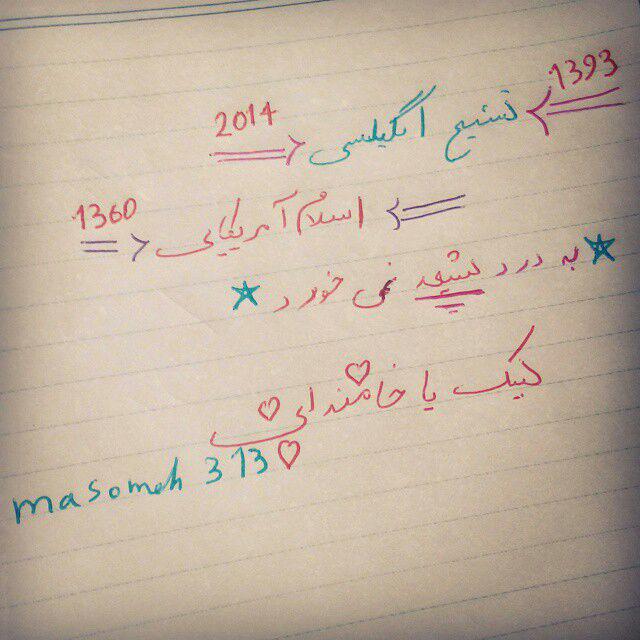 1393
تشیع انگلیسی
2014
اسلام آمریکایی
1360
به درد شیعه نمی خورد
لبیک یا خامنه ای
masomeh 313